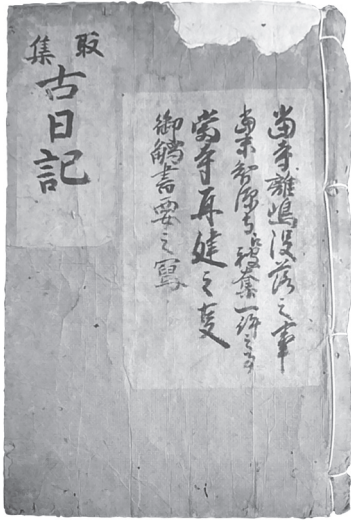 當寺離嶋没落之事
當末智源寺集一件之事
當寺再建之叓
御觸書要之寫
取集
古日記